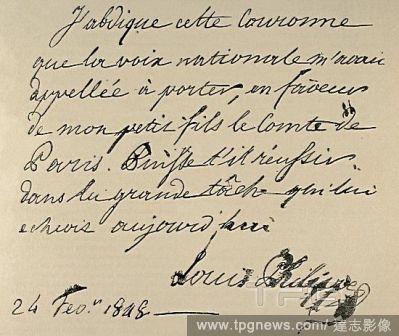 J'abdique cette Couronne
que la voix nationale m'avait
appellée à porter, en faveur
de mon petit fils le Comte de
Paris. Puisse t'il réussir
dans la grande tâche qui lui
echoit aujourd'hui
Louis Philippe
24 Fev. 1848.
www.tpgnews.com/達志影像